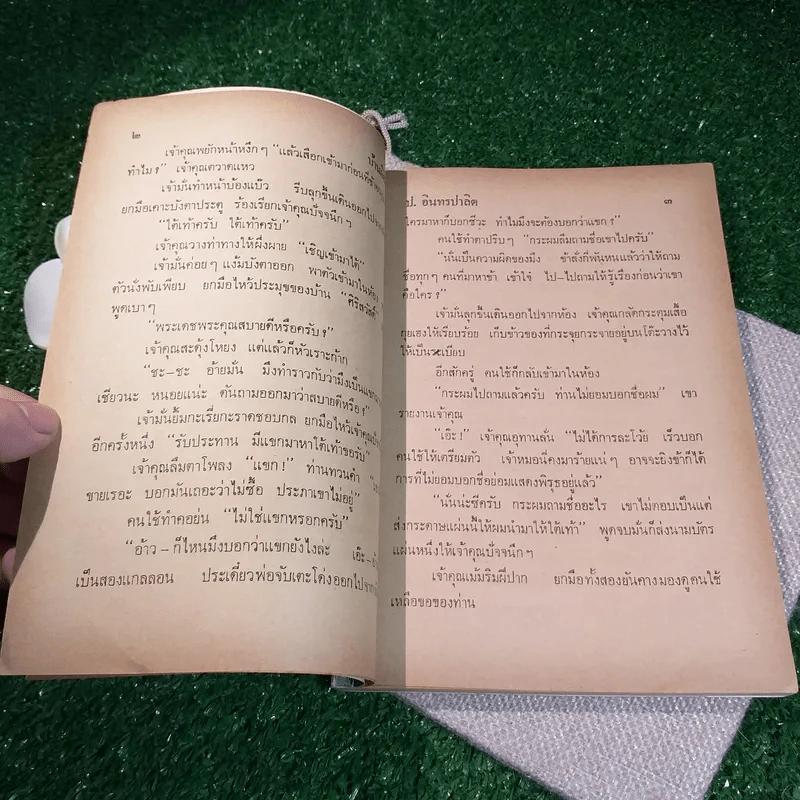 ๒
บ้าน
เจ้าคุณพยักหน้าหงึก ๆ “แล้วเสือกเข้ามาก่อนที่ข้า
ทำไม ?” เจ้าคุณตวาดแหว
เจ้ามั่นทำหน้าบ้องแบ๊ว รีบลุกขึ้นเดินออกไป
ยกมือเคาะบังตาประตู ร้องเรียกเจ้าคุณปัจจนึก ๆ
“ใต้เท้าครับ ใต้เท้าครับ”
เจ้าคุณวางท่าทางให้ผึ่งผาย “เชิญเข้ามาได้”
เจ้ามั่นค่อย ๆ แง้มบังตาออก พาตัวเข้ามาในห้อง
ตัวนั่งพับเพียบ ยกมือไหว้ประมุขของบ้าน “ศิริสวัสดิ์”
พูดเบา ๆ
“พระเดชพระคุณสบายดีหรือครับ ?”
เจ้าคุณสะดุ้งโหยง แต่แล้วก็หัวเราะก๊าก
“ชะ–ชะ อ้ายมั่น มึงทำราวกับว่ามึงเป็นแขก
เชียวนะ หนอยแน่ะ ดันถามออกมาว่าสบายดีหรือ ?
เจ้ามั่นยิ้มกะเรี่ยกะราดชอบกล ยกมือไหว้เจ้าคุณ
อีกครั้งหนึ่ง “รับประทาน มีแขกมาหาใต้เท้าขอรับ”
เจ้าคุณลืมตาโพลง “แขก !” ท่านทวนคำ
ขายเรอะ บอกมันเถอะว่าไม่ซื้อ ประภาเขาไม่อยู่”
คนใช้ทำคอย่น “ไม่ใช่แขกหรอกครับ”
“อ้าว – ก็ไหนมึงบอกว่าแขกยังไงล่ะ เอ๊ะ –
เป็นสองแกลลอน ประเดี๋ยวพ่อจับเตะโด่งออกไป
ป. อินทรปาลิต
๓
ใครมาหาก็บอกซีวะ ทำไมมึงจะต้องบอกว่าแขก ?”
คนใช้ทำตาปริบ ๆ “กระผมลืมถามชื่อเขาไปครับ”
“นั่นเป็นความผิดของมึง ข้าสั่งกี่พันหนแล้วว่าให้ถาม
ชื่อทุก ๆ คนที่มาหาข้า เข้าใจ ไป–ไปถามให้รู้เรื่องก่อนว่าเขา
คือใคร ?”
เจ้ามั่นลุกขึ้นเดินออกไปจากห้อง เจ้าคุณกลัดกระดุมเสื้อ
กุยเฮงให้เรียบร้อย เก็บข้าวของที่กระจุยกระจายอยู่บนโต๊ะวางไว้
ให้เป็นระเบียบ
อีกสักครู่ คนใช้ก็กลับเข้ามาในห้อง
“กระผมไปถามแล้วครับ ท่านไม่ยอมบอกชื่อผม” เขา
รายงานเจ้าคุณ
“เอ๊ะ !” เจ้าคุณอุทานลั่น “ไม่ได้การละโว้ย เร็วบอก
คนใช้ให้เตรียมตัว เจ้าหมอนี่คงมาร้ายแน่ ๆ อาจจะยิงข้าก็ได้
การที่ไม่ยอมบอกชื่อย่อมแสดงพิรุธอยู่แล้ว”
“นั่นน่ะซีครับ กระผมถามชื่ออะไร เขาไม่ตอบเป็นแต่
ส่งกระดาษแผ่นนี้ให้ผมนำมาให้ใต้เท้า” พูดจบมั่นก็ส่งนามบัตร
แผ่นหนึ่งให้เจ้าคุณปัจจนึก ๆ
เจ้าคุณเม้มริมฝีปาก ยกมือทั้งสองยันคางมองดูคนใช้
เหลือขอของท่าน